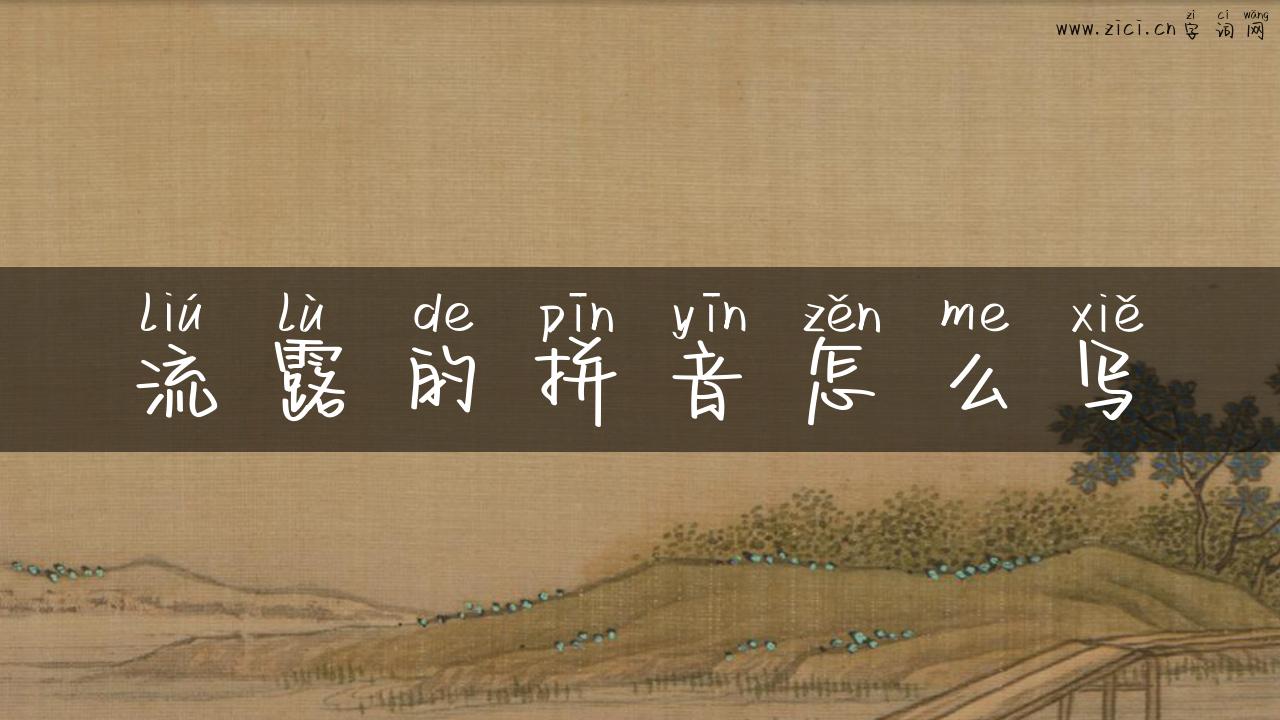 zì cí wǎng
www.zici.cn字词网
liú lù de pīn yīn zěn me xiě
流露的拼音怎么写